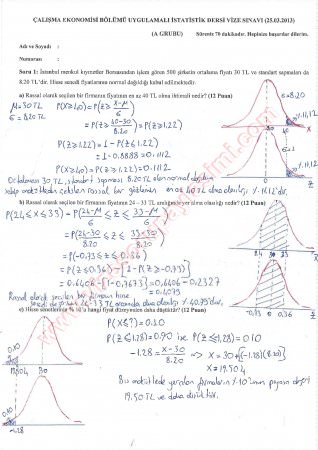 ÇALIŞMA EKONOMİSİ BÖLÜMÜ UYGULAMALI İSTATİSTİK DERSİ VİZE SINAVI (25.03.2013)
(A GRUBU) Süreniz 70 dakikadır. Hepinize başarılar dilerim.
Adı ve Soyadı :
Numarası :
Soru 1: İstanbul menkul kıymetler Borsasından işlem gören 500 şirketin ortalama fiyatı 30 TL ve standart sapmaları da
8.20 TL'dir. Hisse senedi fiyatlarının normal dağıldığı kabul edilmektedir.
a) Rassal olarak seçilen bir firmanın fiyatının en az 40 TL olma ihtimali nedir? (12 Puan)
μ=30 TL P(X≥40)=P(Z≥ X-μ/6)
6=8.20 TL =P(Z≥ 40-30/8.20)=P(Z≥1.22)
6=8.20
%11.12
30 40
0 1.22
P(Z≥1.22)=1-P(Z≤1.22)
=1-0.8888=0.1112
P(X≥40)=P(Z≥1.22)=0.1112
Ortalaması 30 TL, standart sapması 8.20 TL olan normal dağılıma
sahip anakütleden çekilen rassal bir gözlemin en az 40 TL olma olasılığı %11.12'dir.
b) Rassal olarak seçilen bir firmanın fiyatının 24 – 33 TL aralığında olma olasılığı nedir? (12 Puan)
P(24≤X≤33)=P(24-μ/6 ≤Z≤ 33-μ/6)
=P(24-30/8.20 ≤Z≤ 33-30/8.20)
=P(-0.73≤Z≤0.36)
=P(Z≤0.36)-[1-P(Z≥-0.73)]
=0.6406-[1-0.7673]=0.6406-0.2327
=0.4079
24 30 33
-0.73 0 0.36
Rassal olarak seçilen bir firmanın hisse
senedi de 24-33 TL arasında olma olasılığı %40.79'dur.
c) Hisse senetlerinin %10'u hangi fiyat düzeyinden daha düşüktür? (12 Puan)
P(X≤?)=0.10
P(Z≤1.28)=0.90 ise P(Z≤-1.28)=0.10
-1.28= X-30/8.20 => X=30+[(-1.28)(8.20)]
X=19.504
0.10
19.504 30
0.10
-1.28
Bu anakütlede yer alan firmaların %10'unun payının değeri
19.50 TL ve daha düşüktür.